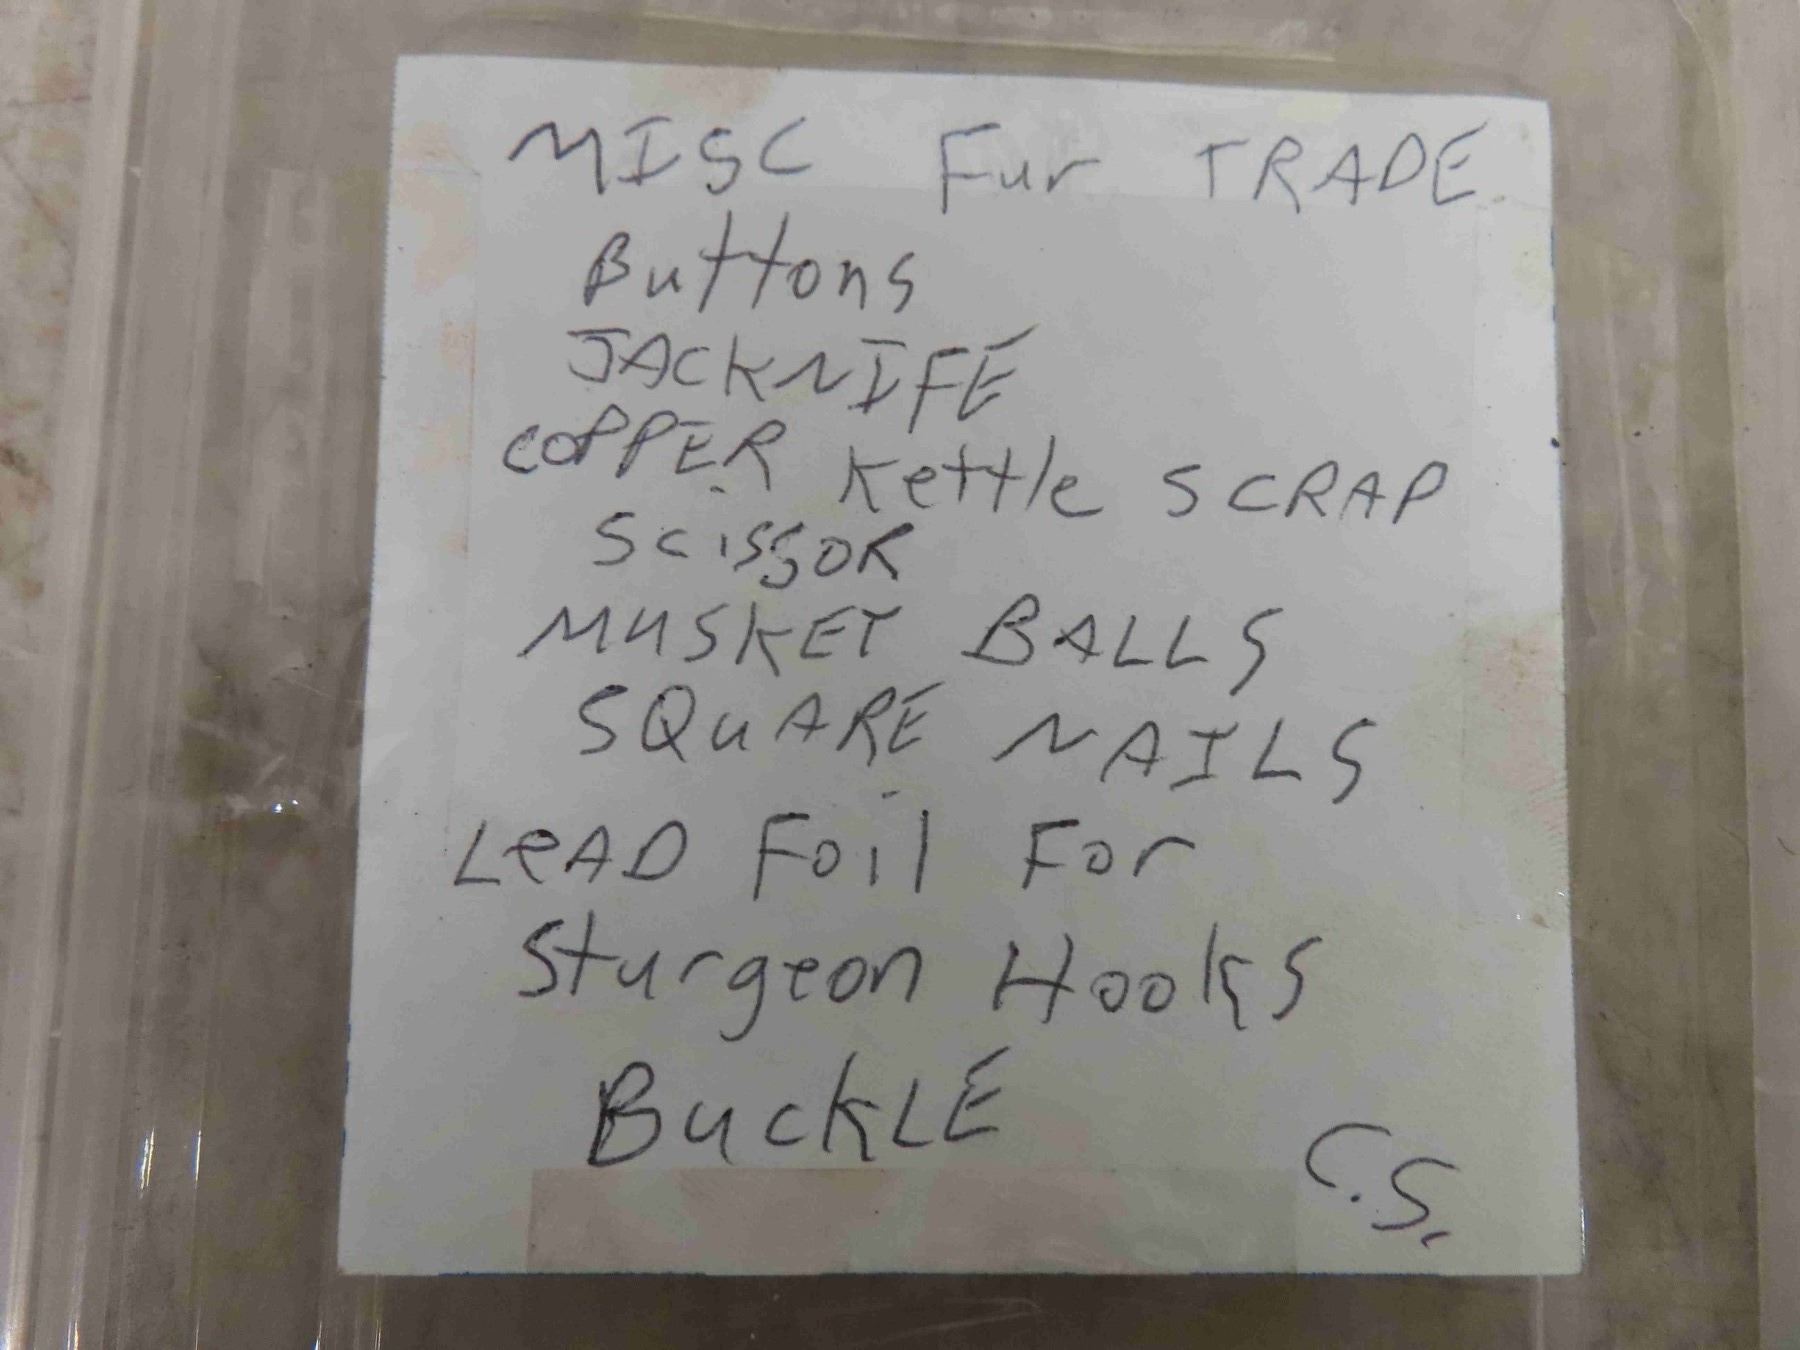 MISC Fur TRADE
Buttons
JACKNIFE
COPPER Kettle SCRAP
SCISSOR
MUSKET BALLS
SQUARE NAILS
LeAD Foil For
Sturgeon Hooks
BuckLE
C.S.